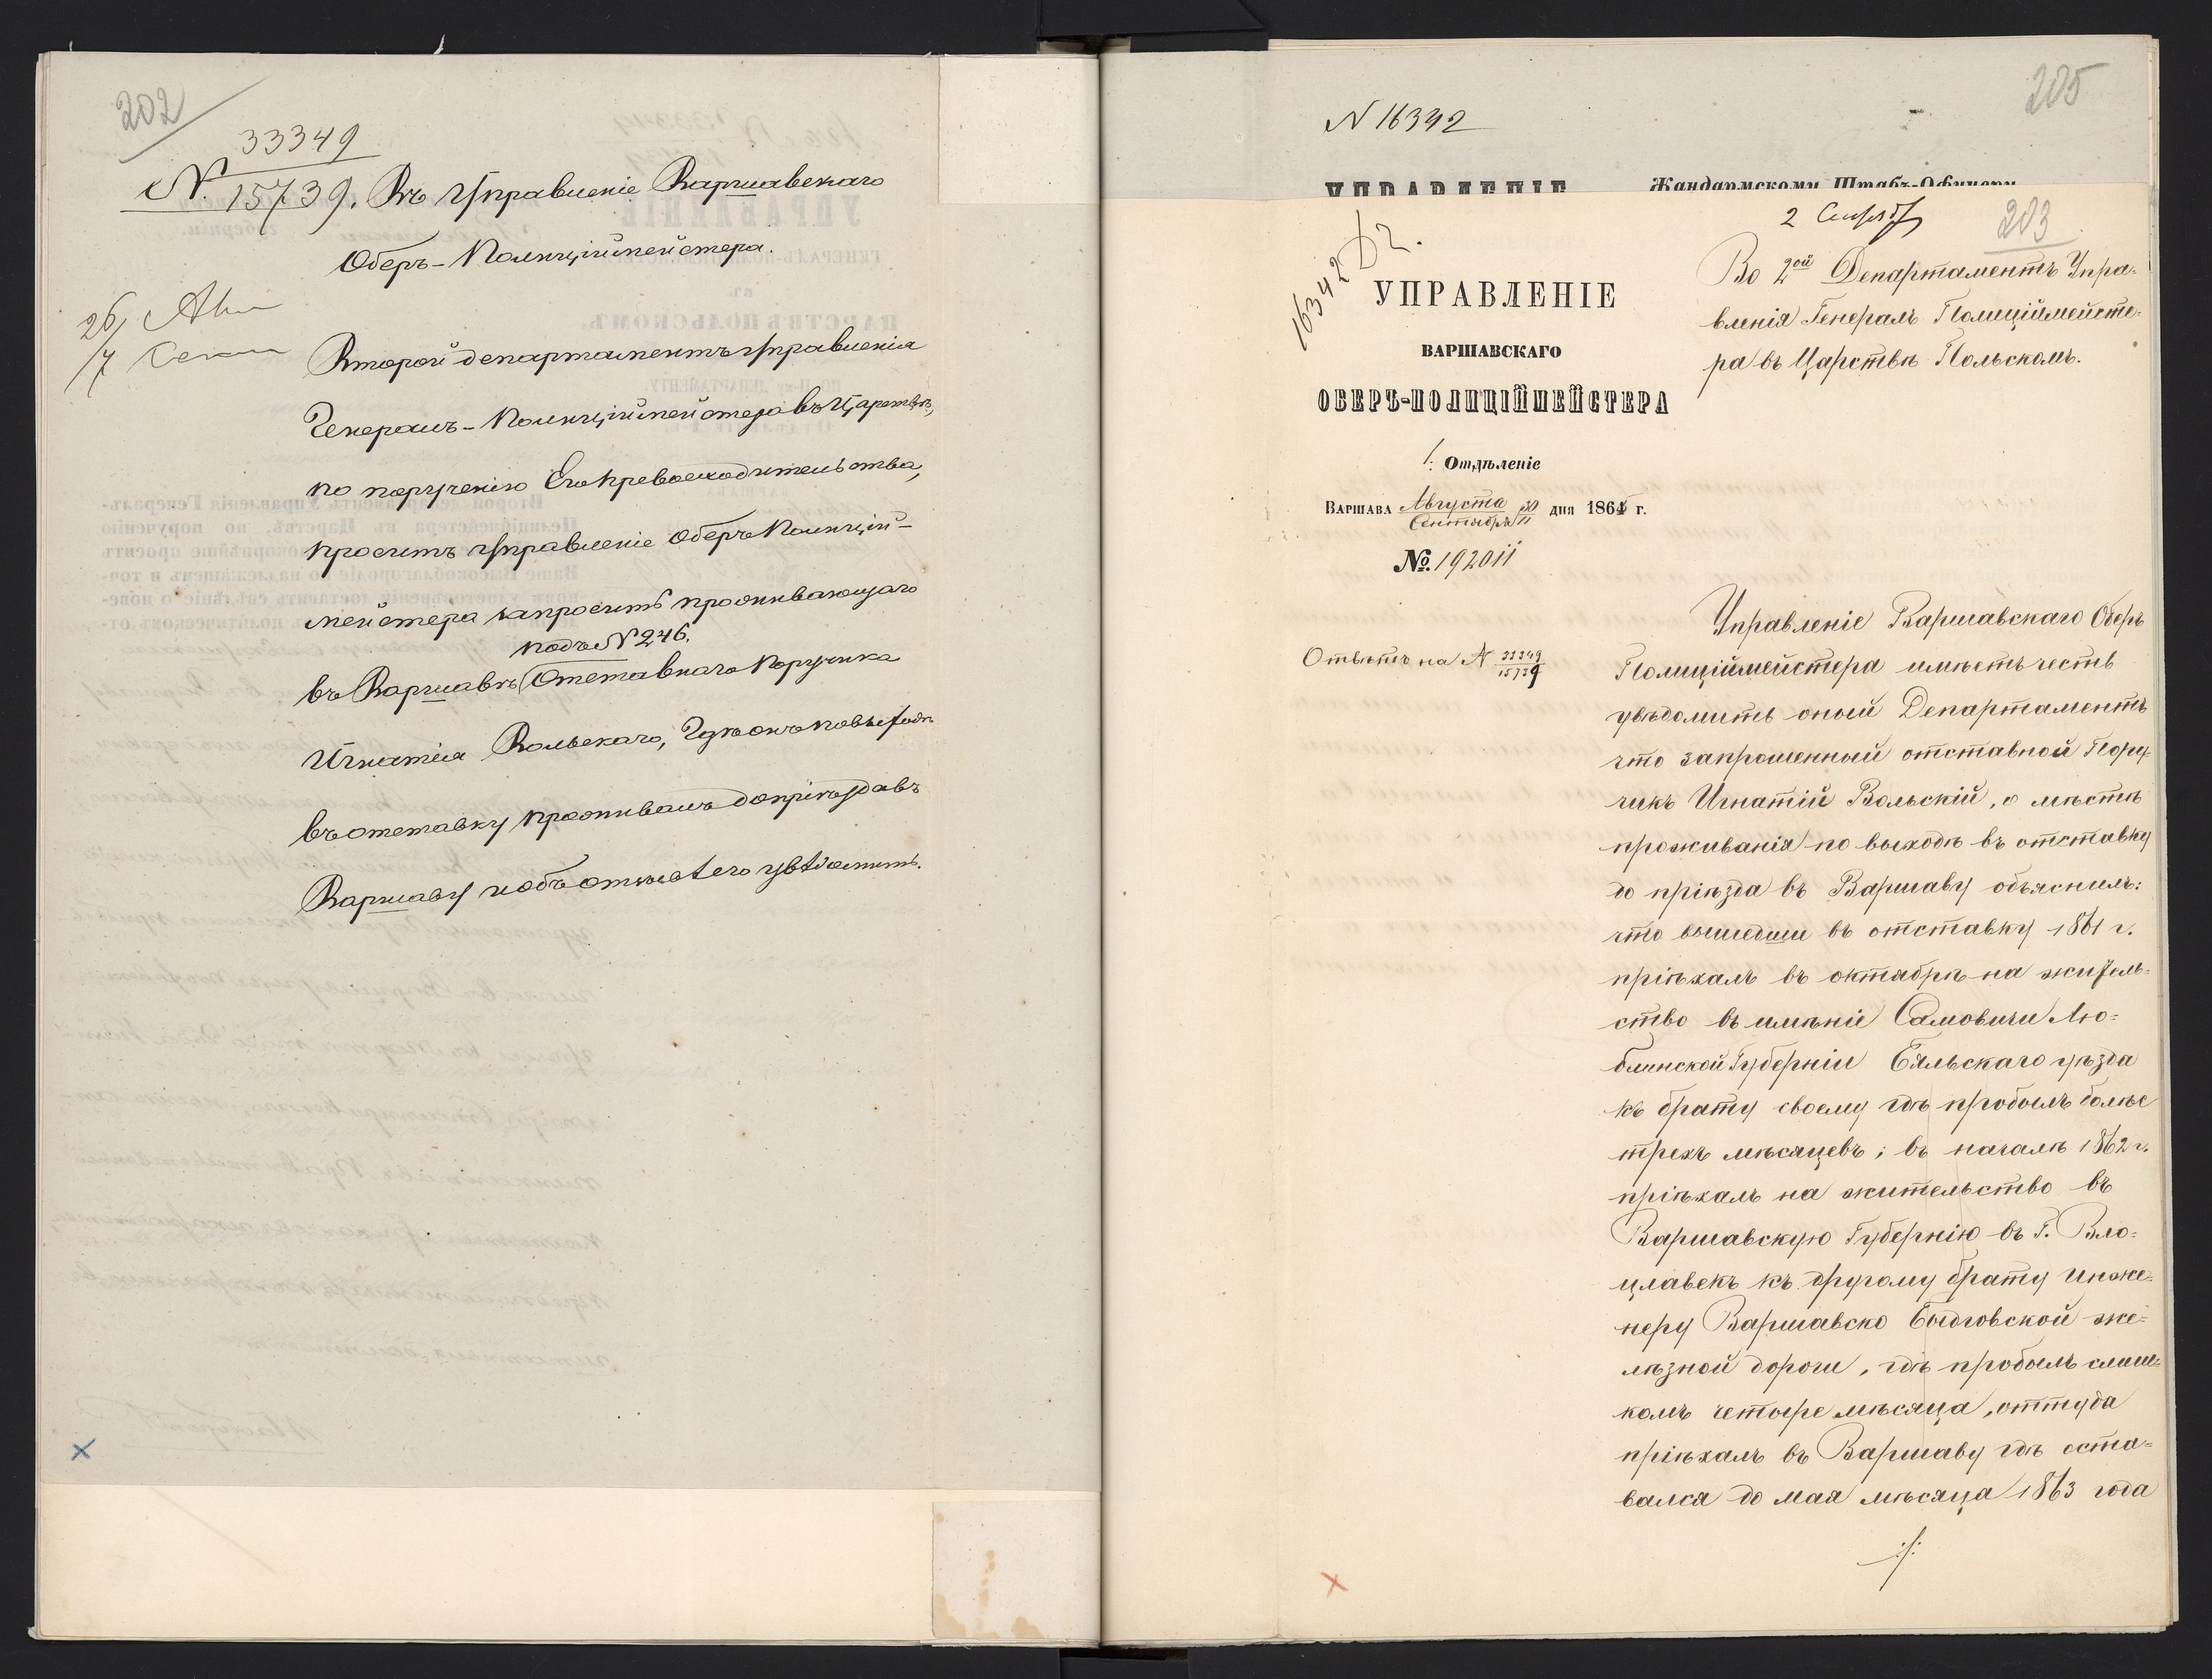 202
33349
N. 15739. Въ Управленіе Варшавскаго
Оберъ-Полиціймейстера.
26/7
Второй департаментъ Управленія
Генералъ-Полиціймейстера въ Царствѣ,
по порученію Его Превосходительства,
проситъ Управленіе Оберъ Полицій-
мейстера запросить проживающаго
подъ N 246.
въ Варшавѣ Отставнаго Поручика
Игнатія Вольскаго, гдѣ онъ по выходѣ
въ отставку проживалъ до пріѣзда въ
Варшаву и объ отвѣтѣ его увѣдомить.
205
N 16342
УПРАВЛЕНІЕ Жандармскому Штабъ-Офицеру
2 Сентяб
203
16342
Во 2ой Департаментъ Упра-
вленія Генералъ Полиціймейсте-
ра въ Царствѣ Польскомъ.
УПРАВЛЕНІЕ
ВАРШАВСКАГО
ОБЕРЪ-ПОЛИЦІЙМЕЙСТЕРА
1: Отдѣленіе
ВАРШАВА Августа 30 / Сентября 11 дня 1864 г.
№. 19201
Отвѣтъ на N 33349/15739
Управленіе Варшавскаго Оберъ
Полиціймейстера имѣетъ честь
увѣдомить оный Департаментъ
что запрошенный отставной Пору-
чикъ Игнатій Вольскій, о мѣстѣ
проживанія по выходѣ въ отставку
до пріѣзда въ Варшаву объяснилъ:
что вышедши въ отставку 1861 г.
пріѣхалъ въ октябрѣ на житель-
ство въ имѣніе Самовичи Лю-
блинской Губерніи Бяльскаго уѣзда
къ брату своему гдѣ пробылъ болѣе
трехъ мѣсяцевъ; въ началѣ 1862 г.
пріѣхалъ на жительство въ
Варшавскую Губернію въ Г. Вло-
цлавекъ къ другому брату инже-
неру Варшавско Быдговской же-
лѣзной дороги, гдѣ пробылъ слиш-
комъ четыре мѣсяца, оттуда
пріѣхалъ въ Варшаву гдѣ оста-
вался до мая мѣсяца 1863 года